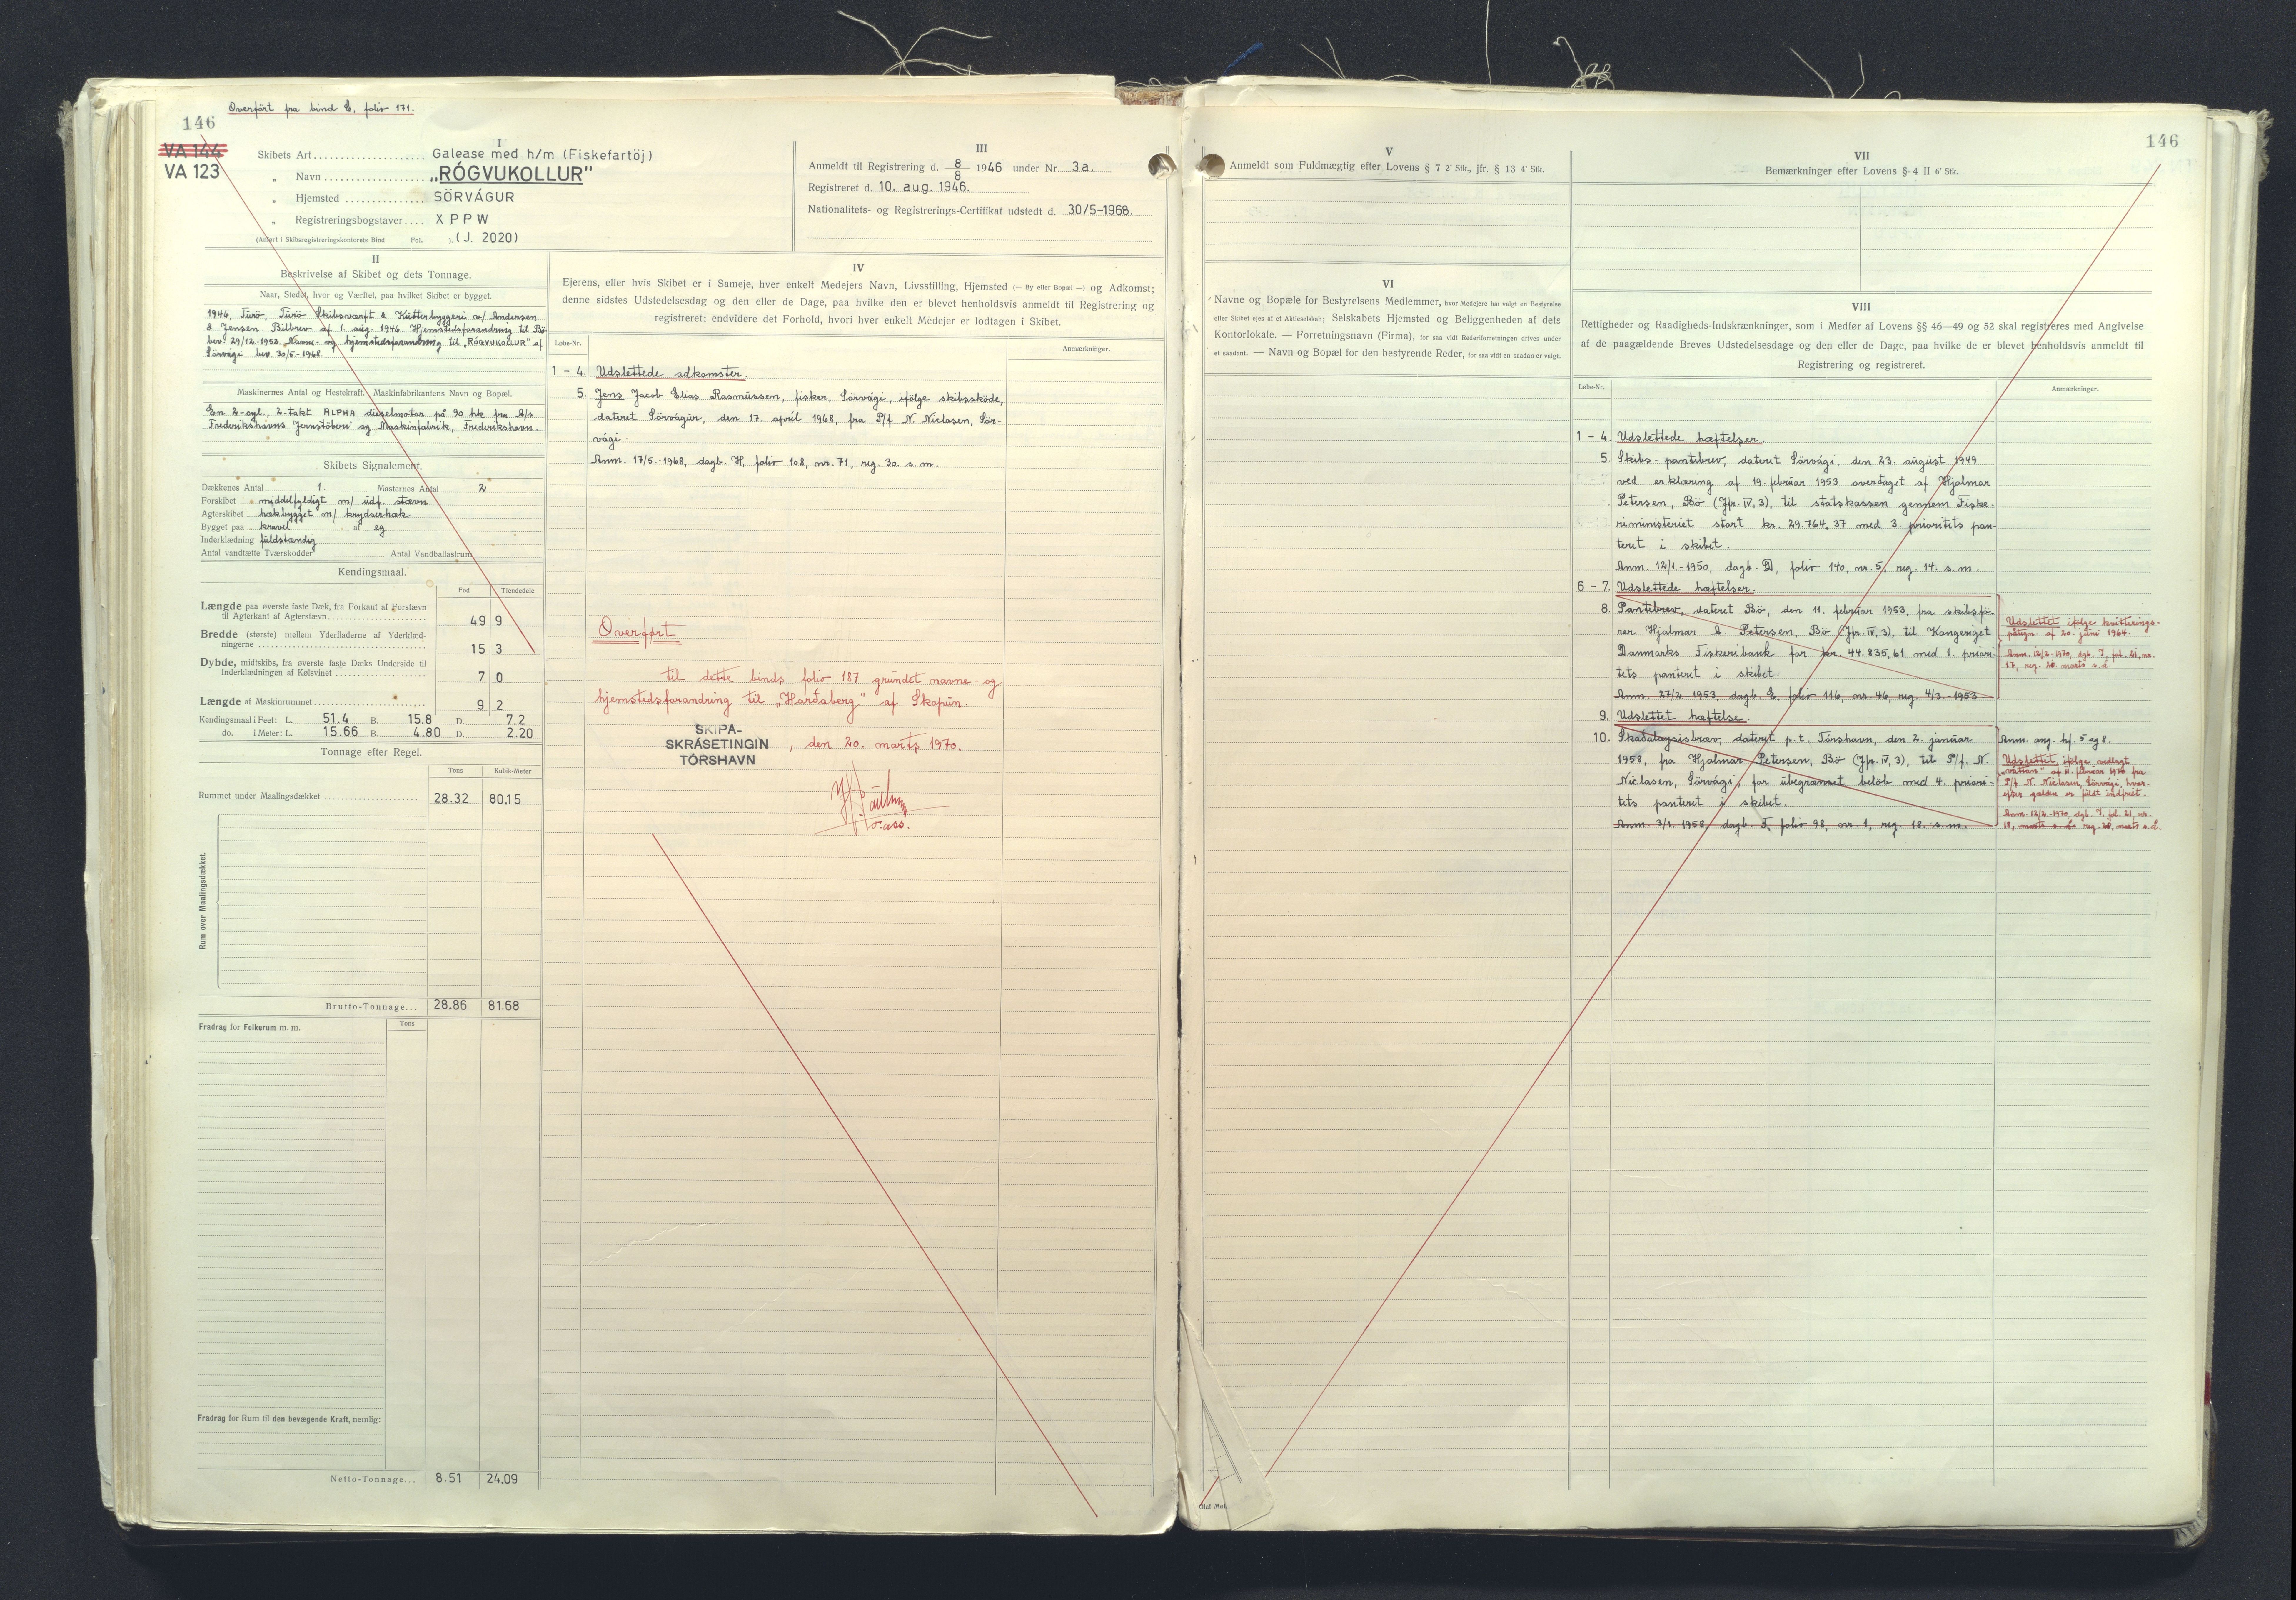 Overført fra bind E, folio 171.
146
VA 144
VA 123
I
Skibets Art Galease med h/m (Fiskefartöj)
„ Navn „RÓGVUKOLLUR"
„ Hjemsted SÖRVÁGUR
„ Registreringsbogstaver X P P W
(Anført i Skibsregistreringskontorets Bind Fol. ). (J. 2020)
III
Anmeldt til Registrering d. 8/8 1946 under Nr. 3a.
Registreret d. 10. aug. 1946.
Nationalitets- og Registrerings-Certifikat udstedt d. 30/5-1968.
II
Beskrivelse af Skibet og dets Tonnage.
Naar, Stedet, hvor og Værftet, paa hvilket Skibet er bygget.
1946, Turö, Turö Skibsværft & Kutterbyggeri v/ Andersen
& Jensen. Bilbrev af 1. aug. 1946. Hjemstedsforandring til Bö
bev. 29/12-1953. Navne- og hjemstedsforandring til „RÓGVUKOLLUR" af
Sörvági bev. 30/5-1968.
Maskinernes Antal og Hestekraft. Maskinfabrikantens Navn og Bopæl.
En 2-cyl., 2-takt ALPHA dieselmotor på 90 hk fra A/s
Frederikshavns Jernstöberi og Maskinfabrik, Frederikshavn.
Skibets Signalement.
Dækkenes Antal 1. Masternes Antal 2
Forskibet middelfyldigt m/ udf. stævn
Agterskibet hækbygget m/ krydserhæk
Bygget paa kravel af eg
Inderklædning fuldstændig
Antal vandtætte Tværskodder Antal Vandballastrum
Kendingsmaal.
Fod Tiendedele
Længde paa øverste faste Dæk, fra Forkant af Forstævn
til Agterkant af Agterstævn 49 9
Bredde (største) mellem Yderfladerne af Yderklæd-
ningerne 15 3
Dybde, midtskibs, fra øverste faste Dæks Underside til
Inderklædningen af Kølsvinet 7 0
Længde af Maskinrummet 9 2
Kendingsmaal i Feet: L. 51.4 B. 15.8 D. 7.2
do. i Meter: L. 15.66 B. 4.80 D. 2.20
Tonnage efter Regel.
Tons Kubik-Meter
Rummet under Maalingsdækket 28.32 80.15
Rum over Maalingsdækket.
Brutto-Tonnage... 28.86 81.68
Fradrag for Folkerum m. m. Tons
Fradrag for Rum til den bevægende Kraft, nemlig:
Netto-Tonnage... 8.51 24.09
IV
Ejerens, eller hvis Skibet er i Sameje, hver enkelt Medejers Navn, Livsstilling, Hjemsted (— By eller Bopæl —) og Adkomst;
denne sidstes Udstedelsesdag og den eller de Dage, paa hvilke den er blevet henholdsvis anmeldt til Registrering og
registreret: endvidere det Forhold, hvori hver enkelt Medejer er lodtagen i Skibet.
Løbe-Nr. Anmærkninger.
1 - 4. Udslettede adkomster.
5. Jens Jacob Elias Rasmussen, fisker, Sörvági, ifölge skibsskøde,
dateret Sörvágur, den 17. apríl 1968, fra P/f N. Niclasen, Sör-
vági.
Anm. 17/5-1968, dagb. H, folio 108, nr. 71, reg. 30. s. m.
Overført
til dette binds folio 187 grundet navne- og
hjemstedsforandring til „Harðaberg" af Skopun.
SKIPA-
SKRÁSETINGIN
TÓRSHAVN
, den 20. marts 1970.
o.ass.
146
V
Anmeldt som Fuldmægtig efter Lovens § 7 2' Stk., jfr. § 13 4' Stk.
VI
Navne og Bopæle for Bestyrelsens Medlemmer, hvor Medejere har valgt en Bestyrelse
eller Skibet ejes af et Aktieselskab; Selskabets Hjemsted og Beliggenheden af dets
Kontorlokale. — Forretningsnavn (Firma), for saa vidt Rederiforretningen drives under
et saadant. — Navn og Bopæl for den bestyrende Reder, for saa vidt en saadan er valgt.
VII
Bemærkninger efter Lovens § 4 II 6' Stk.
VIII
Rettigheder og Raadigheds-Indskrænkninger, som i Medfør af Lovens §§ 46—49 og 52 skal registreres med Angivelse
af de paagældende Breves Udstedelsesdage og den eller de Dage, paa hvilke de er blevet henholdsvis anmeldt til
Registrering og registreret.
Løbe-Nr. Anmærkninger.
1 - 4. Udslettede hæftelser.
5. Skibs-pantebrev, dateret Sörvági, den 23. august 1949
ved erklæring af 19. februar 1953 overtaget af Hjalmar
Petersen, Bö (Jfr. IV, 3), til statskassen gennem Fiske-
riministeriet stort kr. 29.764,37 med 3. prioritets pan-
teret i skibet.
Anm. 12/1-1950, dagb. D, folio 140, nr. 5, reg. 14. s. m.
6 - 7. Udslettede hæftelser.
8. Pantebrev, dateret Bö, den 11. februar 1953, fra skibsfö-
rer Hjalmar A. Petersen, Bö (Jfr. IV, 3), til Kongeriget
Danmarks Fiskeribank for kr. 44.835,61 med 1. priori-
tets panteret i skibet.
Anm. 27/2-1953, dagb. E, folio 116, nr. 46, reg. 4/3-1953
Udslettet ifölge kvitterings-
påtegn. af 20. juni 1964.
Anm. 12/2-1970, dgb. I, fol. 21, nr.
17, reg. 20. marts s. å.
9. Udslettet hæftelse.
10. Skaðaloysisbræv, dateret p.t. Tórshavn, den 2. januar
1958, fra Hjalmar Petersen, Bö (Jfr. IV, 3), til P/f. N.
Niclasen, Sörvági, for ubegrænset belöb med 4. priori-
tets panteret i skibet.
Anm. 3/1. 1958, dagb. F, folio 98, nr. 1, reg. 18. s. m.
Anm. ang. hf. 5 og 8.
Udslettet ifölge vedlagt
„váttan" af 11. februar 1970 fra
P/f N. Niclasen, Sörvági, hvor-
efter gælden er fuldt indfriet.
Anm. 12/2-1970, dgb. I, fol. 21, nr.
18, marts s. å. reg. 20. marts s. å.
Olaf Møl.